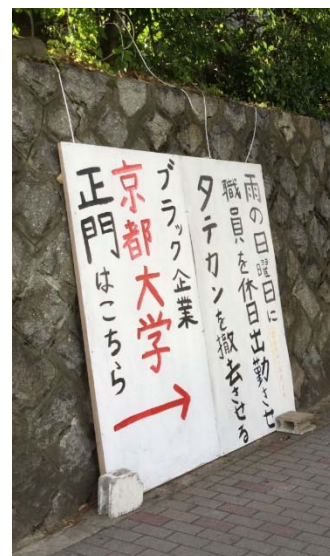 雨の日曜日に
職員を休日出勤させ
タテカンを撤去させる
ブラック企業
京都大学
正門はこちら
→